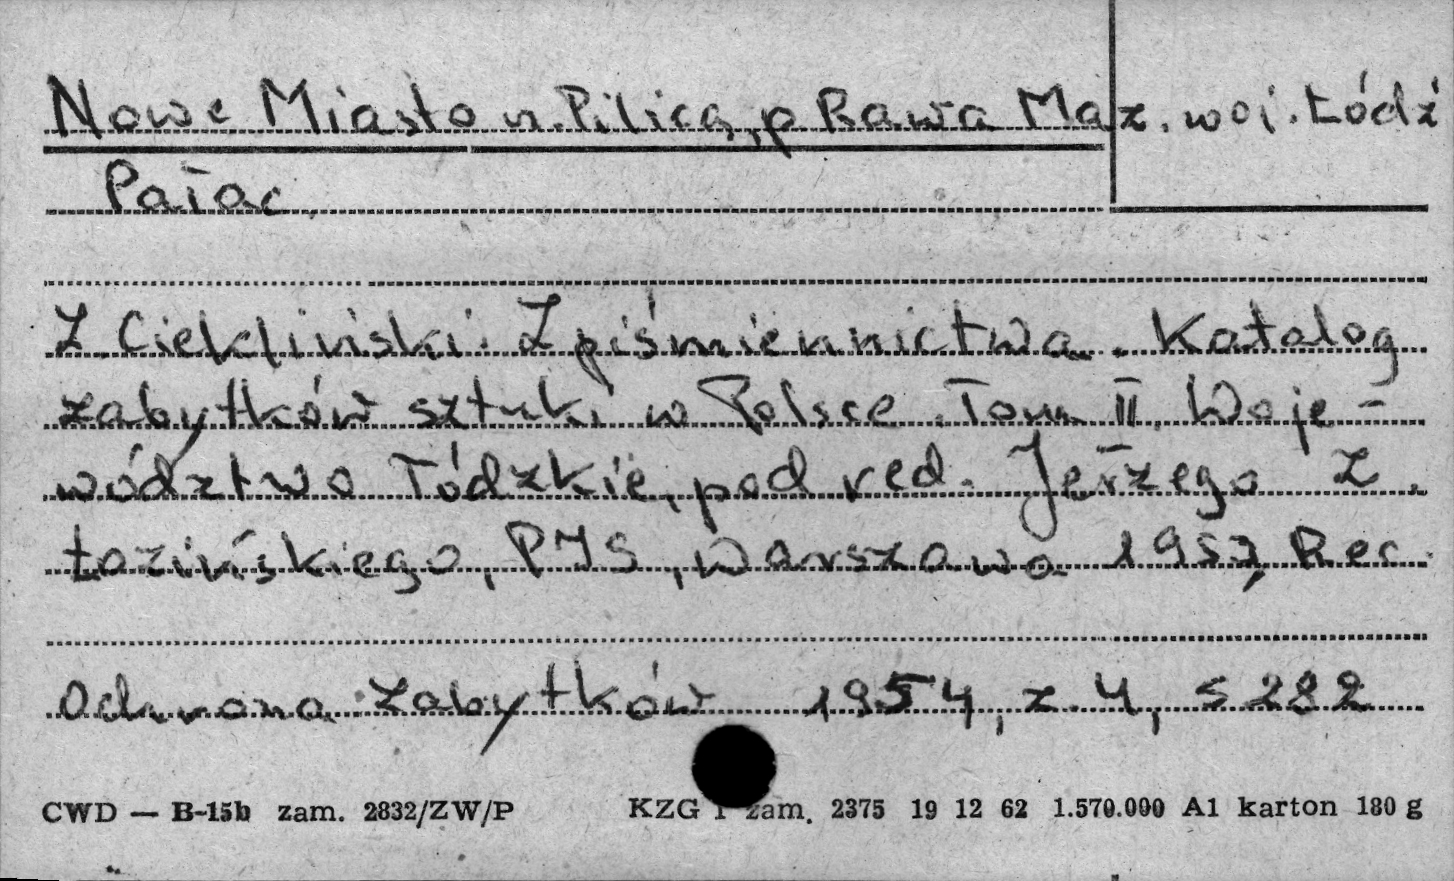 Nowe Miasto n. Pilicą, p Rawa Maz. woj. Łódź
Pałac
Z. Ciekliński. Z piśmiennictwa. Katalog
zabytków sztuki w Polsce. Tom II. Woje-
wództwo łódzkie, pod red. Jerzego Z.
Łozińskiego, PIS, Warszawa 1953, Rec.
Ochrona Zabytków 1954, z. 4, s 282
CWD — B-15b zam. 2832/ZW/P KZG 1 zam. 2375 19 12 62 1.570.000 A1 karton 180 g